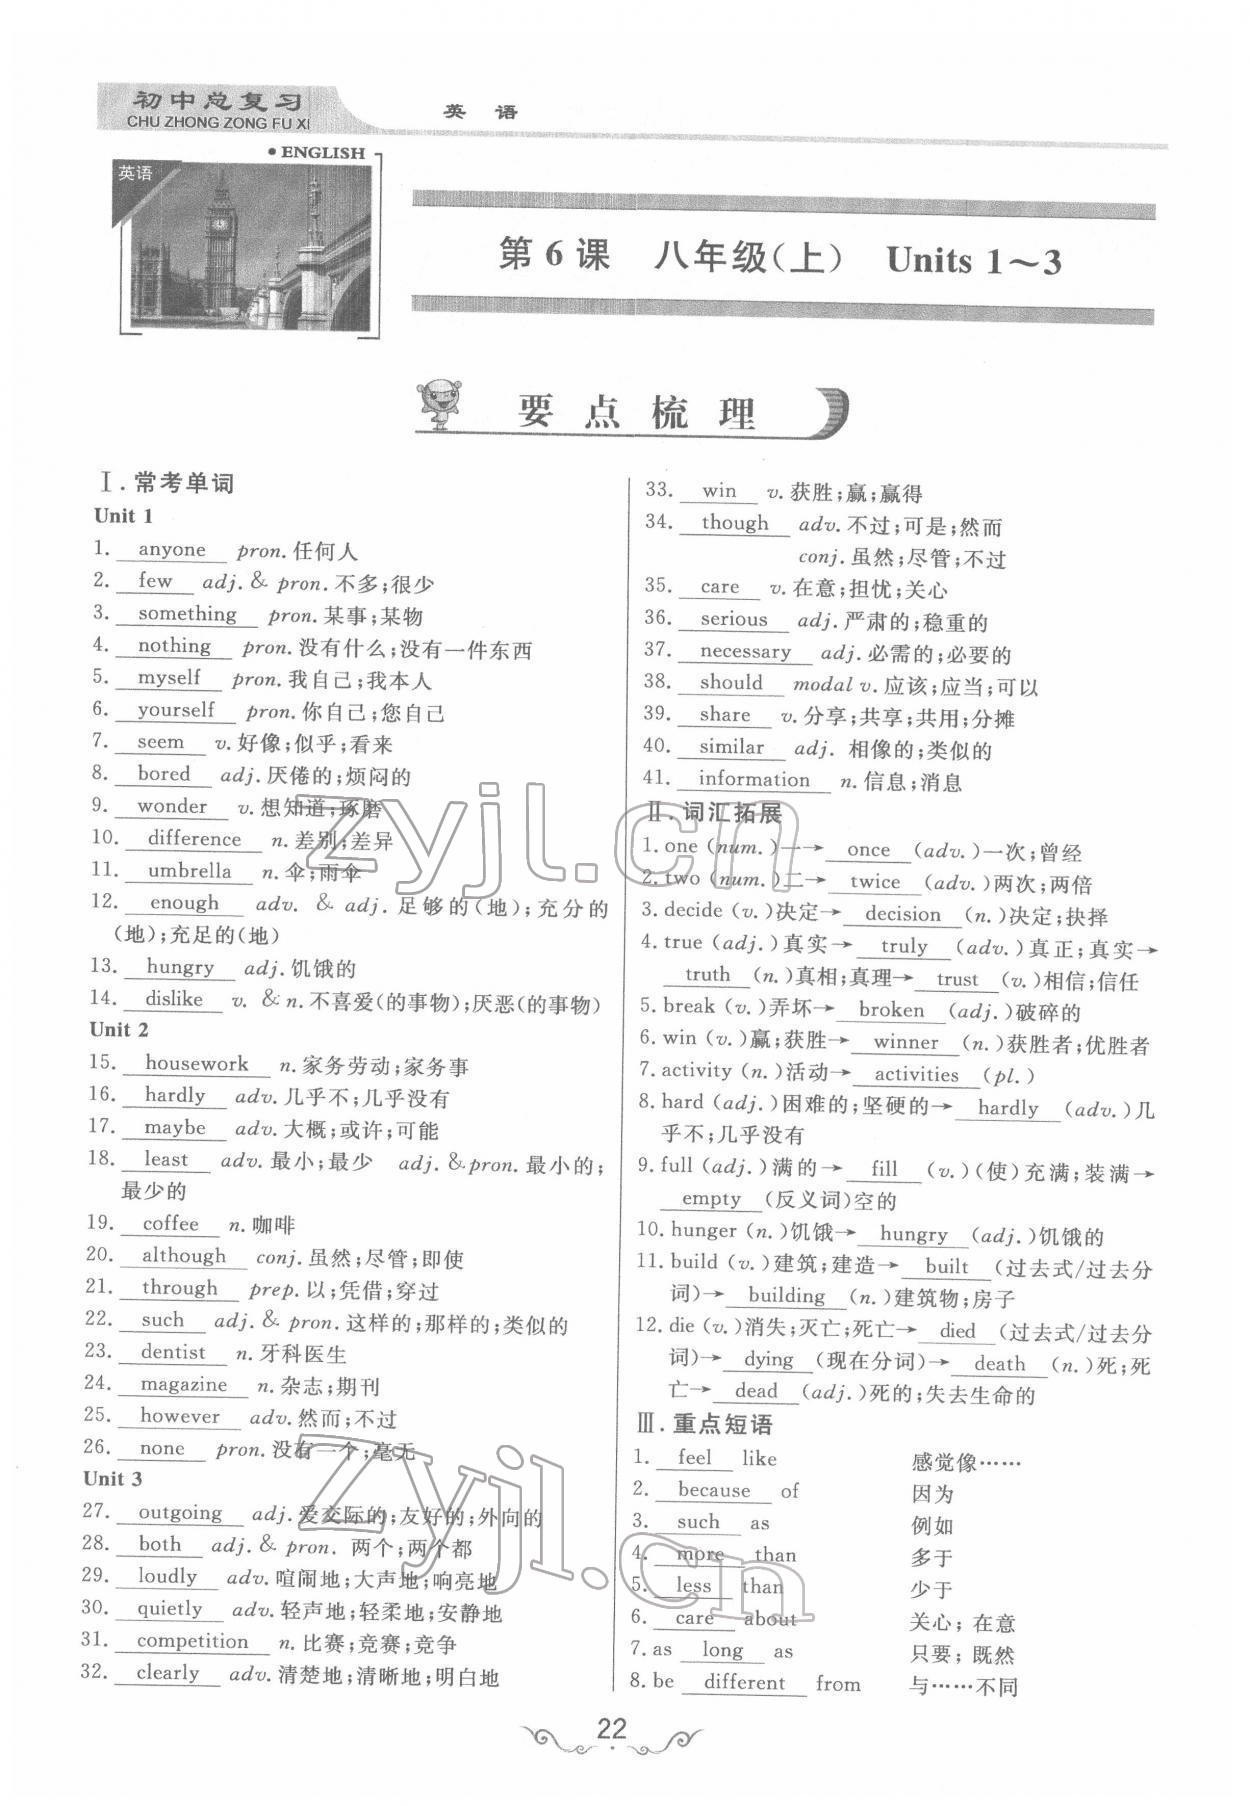 初中总复习
CHU ZHONG ZONG FU XI
英 语
• ENGLISH
英语
第 6 课 八年级(上) Units 1～3
要 点 梳 理
Ⅰ. 常考单词
Unit 1
1. anyone pron. 任何人
2. few adj. & pron. 不多;很少
3. something pron. 某事;某物
4. nothing pron. 没有什么;没有一件东西
5. myself pron. 我自己;我本人
6. yourself pron. 你自己;您自己
7. seem v. 好像;似乎;看来
8. bored adj. 厌倦的;烦闷的
9. wonder v. 想知道;琢磨
10. difference n. 差别;差异
11. umbrella n. 伞;雨伞
12. enough adv. & adj. 足够的(地);充分的
(地);充足的(地)
13. hungry adj. 饥饿的
14. dislike v. & n. 不喜爱(的事物);厌恶(的事物)
Unit 2
15. housework n. 家务劳动;家务事
16. hardly adv. 几乎不;几乎没有
17. maybe adv. 大概;或许;可能
18. least adv. 最小;最少 adj. & pron. 最小的;
最少的
19. coffee n. 咖啡
20. although conj. 虽然;尽管;即使
21. through prep. 以;凭借;穿过
22. such adj. & pron. 这样的;那样的;类似的
23. dentist n. 牙科医生
24. magazine n. 杂志;期刊
25. however adv. 然而;不过
26. none pron. 没有一个;毫无
Unit 3
27. outgoing adj. 爱交际的;友好的;外向的
28. both adj. & pron. 两个;两个都
29. loudly adv. 喧闹地;大声地;响亮地
30. quietly adv. 轻声地;轻柔地;安静地
31. competition n. 比赛;竞赛;竞争
32. clearly adv. 清楚地;清晰地;明白地
33. win v. 获胜;赢;赢得
34. though adv. 不过;可是;然而
conj. 虽然;尽管;不过
35. care v. 在意;担忧;关心
36. serious adj. 严肃的;稳重的
37. necessary adj. 必需的;必要的
38. should modal v. 应该;应当;可以
39. share v. 分享;共享;共用;分摊
40. similar adj. 相像的;类似的
41. information n. 信息;消息
Ⅱ. 词汇拓展
1. one (num.)一→ once (adv.)一次;曾经
2. two (num.)二→ twice (adv.)两次;两倍
3. decide (v.)决定→ decision (n.)决定;抉择
4. true (adj.)真实→ truly (adv.)真正;真实→
truth (n.)真相;真理→ trust (v.)相信;信任
5. break (v.)弄坏→ broken (adj.)破碎的
6. win (v.)赢;获胜→ winner (n.)获胜者;优胜者
7. activity (n.)活动→ activities (pl.)
8. hard (adj.)困难的;坚硬的→ hardly (adv.)几
乎不;几乎没有
9. full (adj.)满的→ fill (v.)(使)充满;装满→
empty (反义词)空的
10. hunger (n.)饥饿→ hungry (adj.)饥饿的
11. build (v.)建筑;建造→ built (过去式/过去分
词)→ building (n.)建筑物;房子
12. die (v.)消失;灭亡;死亡→ died (过去式/过去分
词)→ dying (现在分词)→ death (n.)死;死
亡→ dead (adj.)死的;失去生命的
Ⅲ. 重点短语
1. feel like 感觉像……
2. because of 因为
3. such as 例如
4. more than 多于
5. less than 少于
6. care about 关心; 在意
7. as long as 只要; 既然
8. be different from 与……不同
22
zyjl.cn
zyjl.cn